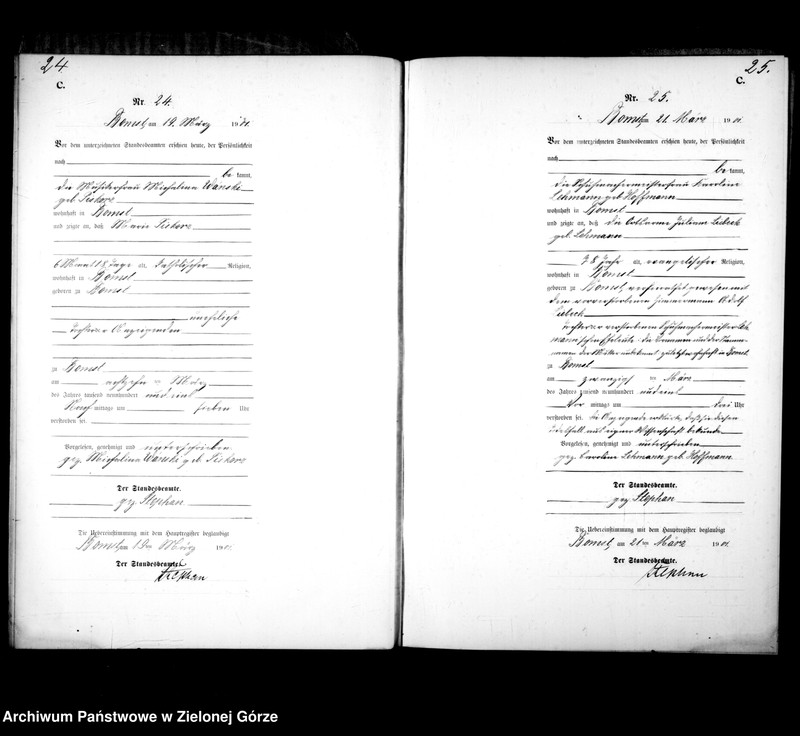 24.
C.
Nr. 24.
Bomst, am 19. März 1901.
Vor dem unterzeichneten Standesbeamten erschien heute, der Persönlichkeit
nach
be kannt,
die Michalina Wanske
geb.
wohnhaft in Bomst
und zeigte an, daß Marie
6 Monat 18 Tage alt, katholischer Religion,
wohnhaft in Bomst
geboren zu Bomst
uneheliche
Tochter der Anzeigenden
zu Bomst
am achtzehn ten März
des Jahres tausend neunhundert und eins
Nach mittags um sieben Uhr
verstorben sei.
Vorgelesen, genehmigt und unterschrieben
gez. Michalina Wanske geb.
Der Standesbeamte.
gez. Stephan
Die Uebereinstimmung mit dem Hauptregister beglaubigt
Bomst, am 19ten März 1901.
Der Standesbeamte.
Stephan
25.
C.
Nr. 25.
Bomst, am 21. März 1901.
Vor dem unterzeichneten Standesbeamten erschien heute, der Persönlichkeit
nach
be kannt,
die Schuhmachermeisterfrau Karoline
Lehmann geb. Hoffmann
wohnhaft in Bomst
und zeigte an, daß die Ortsarme Juliane
geb. Lehmann
78 Jahre alt, evangelischer Religion,
wohnhaft in Bomst
geboren zu Bomst, verheirathet gewesen mit
dem vorverstorbenen Zimmermann Adolf
Tochter der verstorbenen Schuhmachermeister Leh-
mann'schen Eheleute
der Mutter unbekannt zuletzt wohnhaft in Bomst
zu Bomst
am zwanzig ten März
des Jahres tausend neunhundert und eins
Vor mittags um drei Uhr
verstorben sei. Die Anzeigende erklärte, daß sie diesen
Todesfall aus eigener Wissenschaft bekunde
Vorgelesen, genehmigt und unterschrieben
gez. Caroline Lehmann geb. Hoffmann
Der Standesbeamte.
gez. Stephan
Die Uebereinstimmung mit dem Hauptregister beglaubigt
Bomst, am 21ten März 1901.
Der Standesbeamte.
Stephan
Archiwum Państwowe w Zielonej Górze